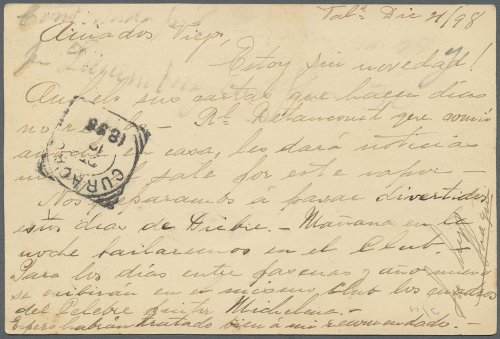 Dic 21/98
Amados Viejos,
Estoy sin novedad!
Anhelo sus cartas que hacen días
no recibo. — R. Betancourt que comió
anoche en casa, les dará noticia
sale por este vapor —
Nos preparamos á pasar divertidos
estos días de Dicbre. — Mañana en la
noche bailaremos en el Club. —
Para los días entre pascuas y año nuevo
se exibirán en el mismo Club los cuadros
del Celebre pintor Michelena. —
Espero habrán tratado bien á mi recomendado. —
CURAÇAO
12
1898